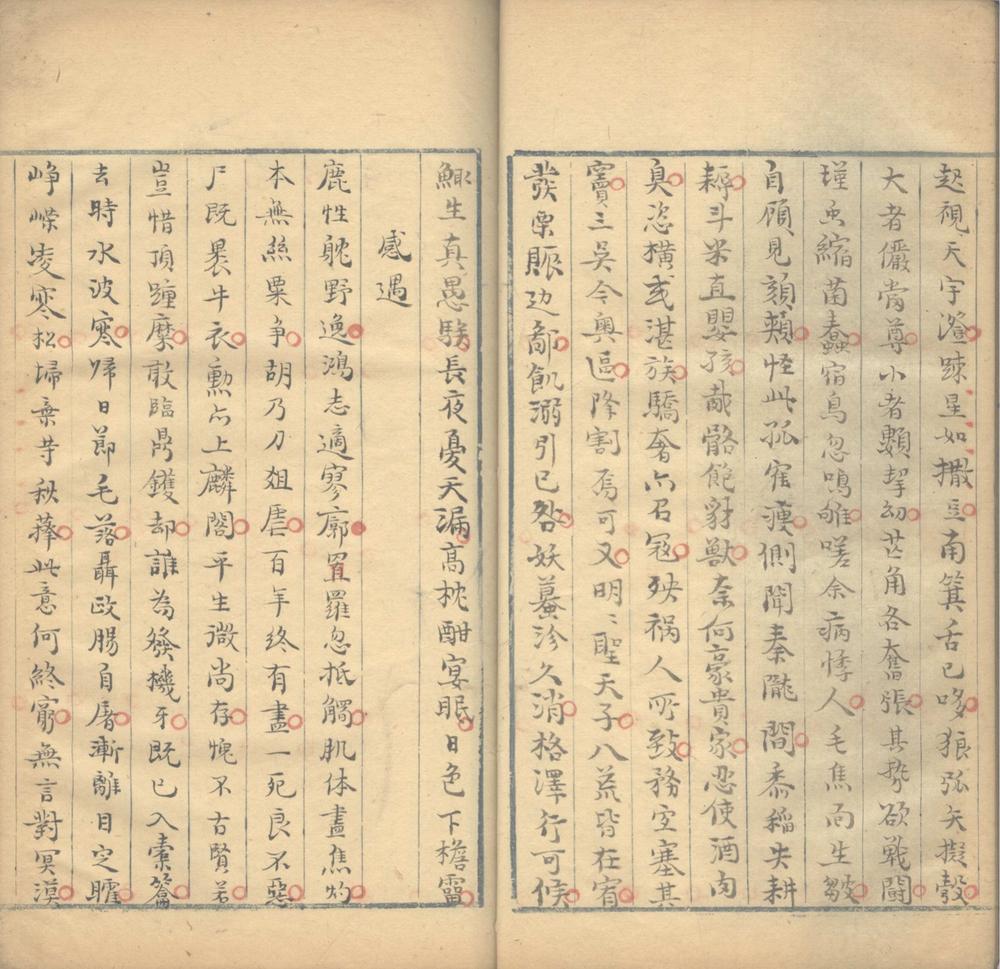 起視天宇澄踈星如撒豆南箕舌已哆狼弧矢擬彀
大者儼當尊小者顆挐幼芒角各奮張其勢欲戰鬪
瑾虫縮菌蠢宿鳥忽鳴雊嗟余病悸人毛焦而生皺
自頋見頦頰怪此孤隺瘦側聞秦隴間黍稲失耕
耨斗米直嬰孩胾骼飽豺獸奈何豪貴家忍使酒肉
臭恣橫或湛族驕奢亦召冦殃禍人所致務空塞其
竇三吳今奧區降割焉可又明〻聖天子八荒皆在宥
發粟賑边鄙飢溺引已咎妖蟇沴久消格澤行可候
鯫生真愚騃長夜憂天漏高枕酣宴眠日色下檐霤
感遇
鹿性躭野逸鴻志適寥廓罝羅忽抵觸肌体盡焦灼
本無絲粟争胡乃刀爼虐百年终有盡一死良不惡
尸既裹牛衣勲亦上麟閣平生微尚存愧不古賢若
豈惜頂踵糜敢臨鼎鑊却誰為發機牙既已入橐籥
去時水波寒歸日節毛落聶政腸自屠漸離目空矐
峥嶸凌寒松埽棄等秋蘀此意何終窮無言對冥漠